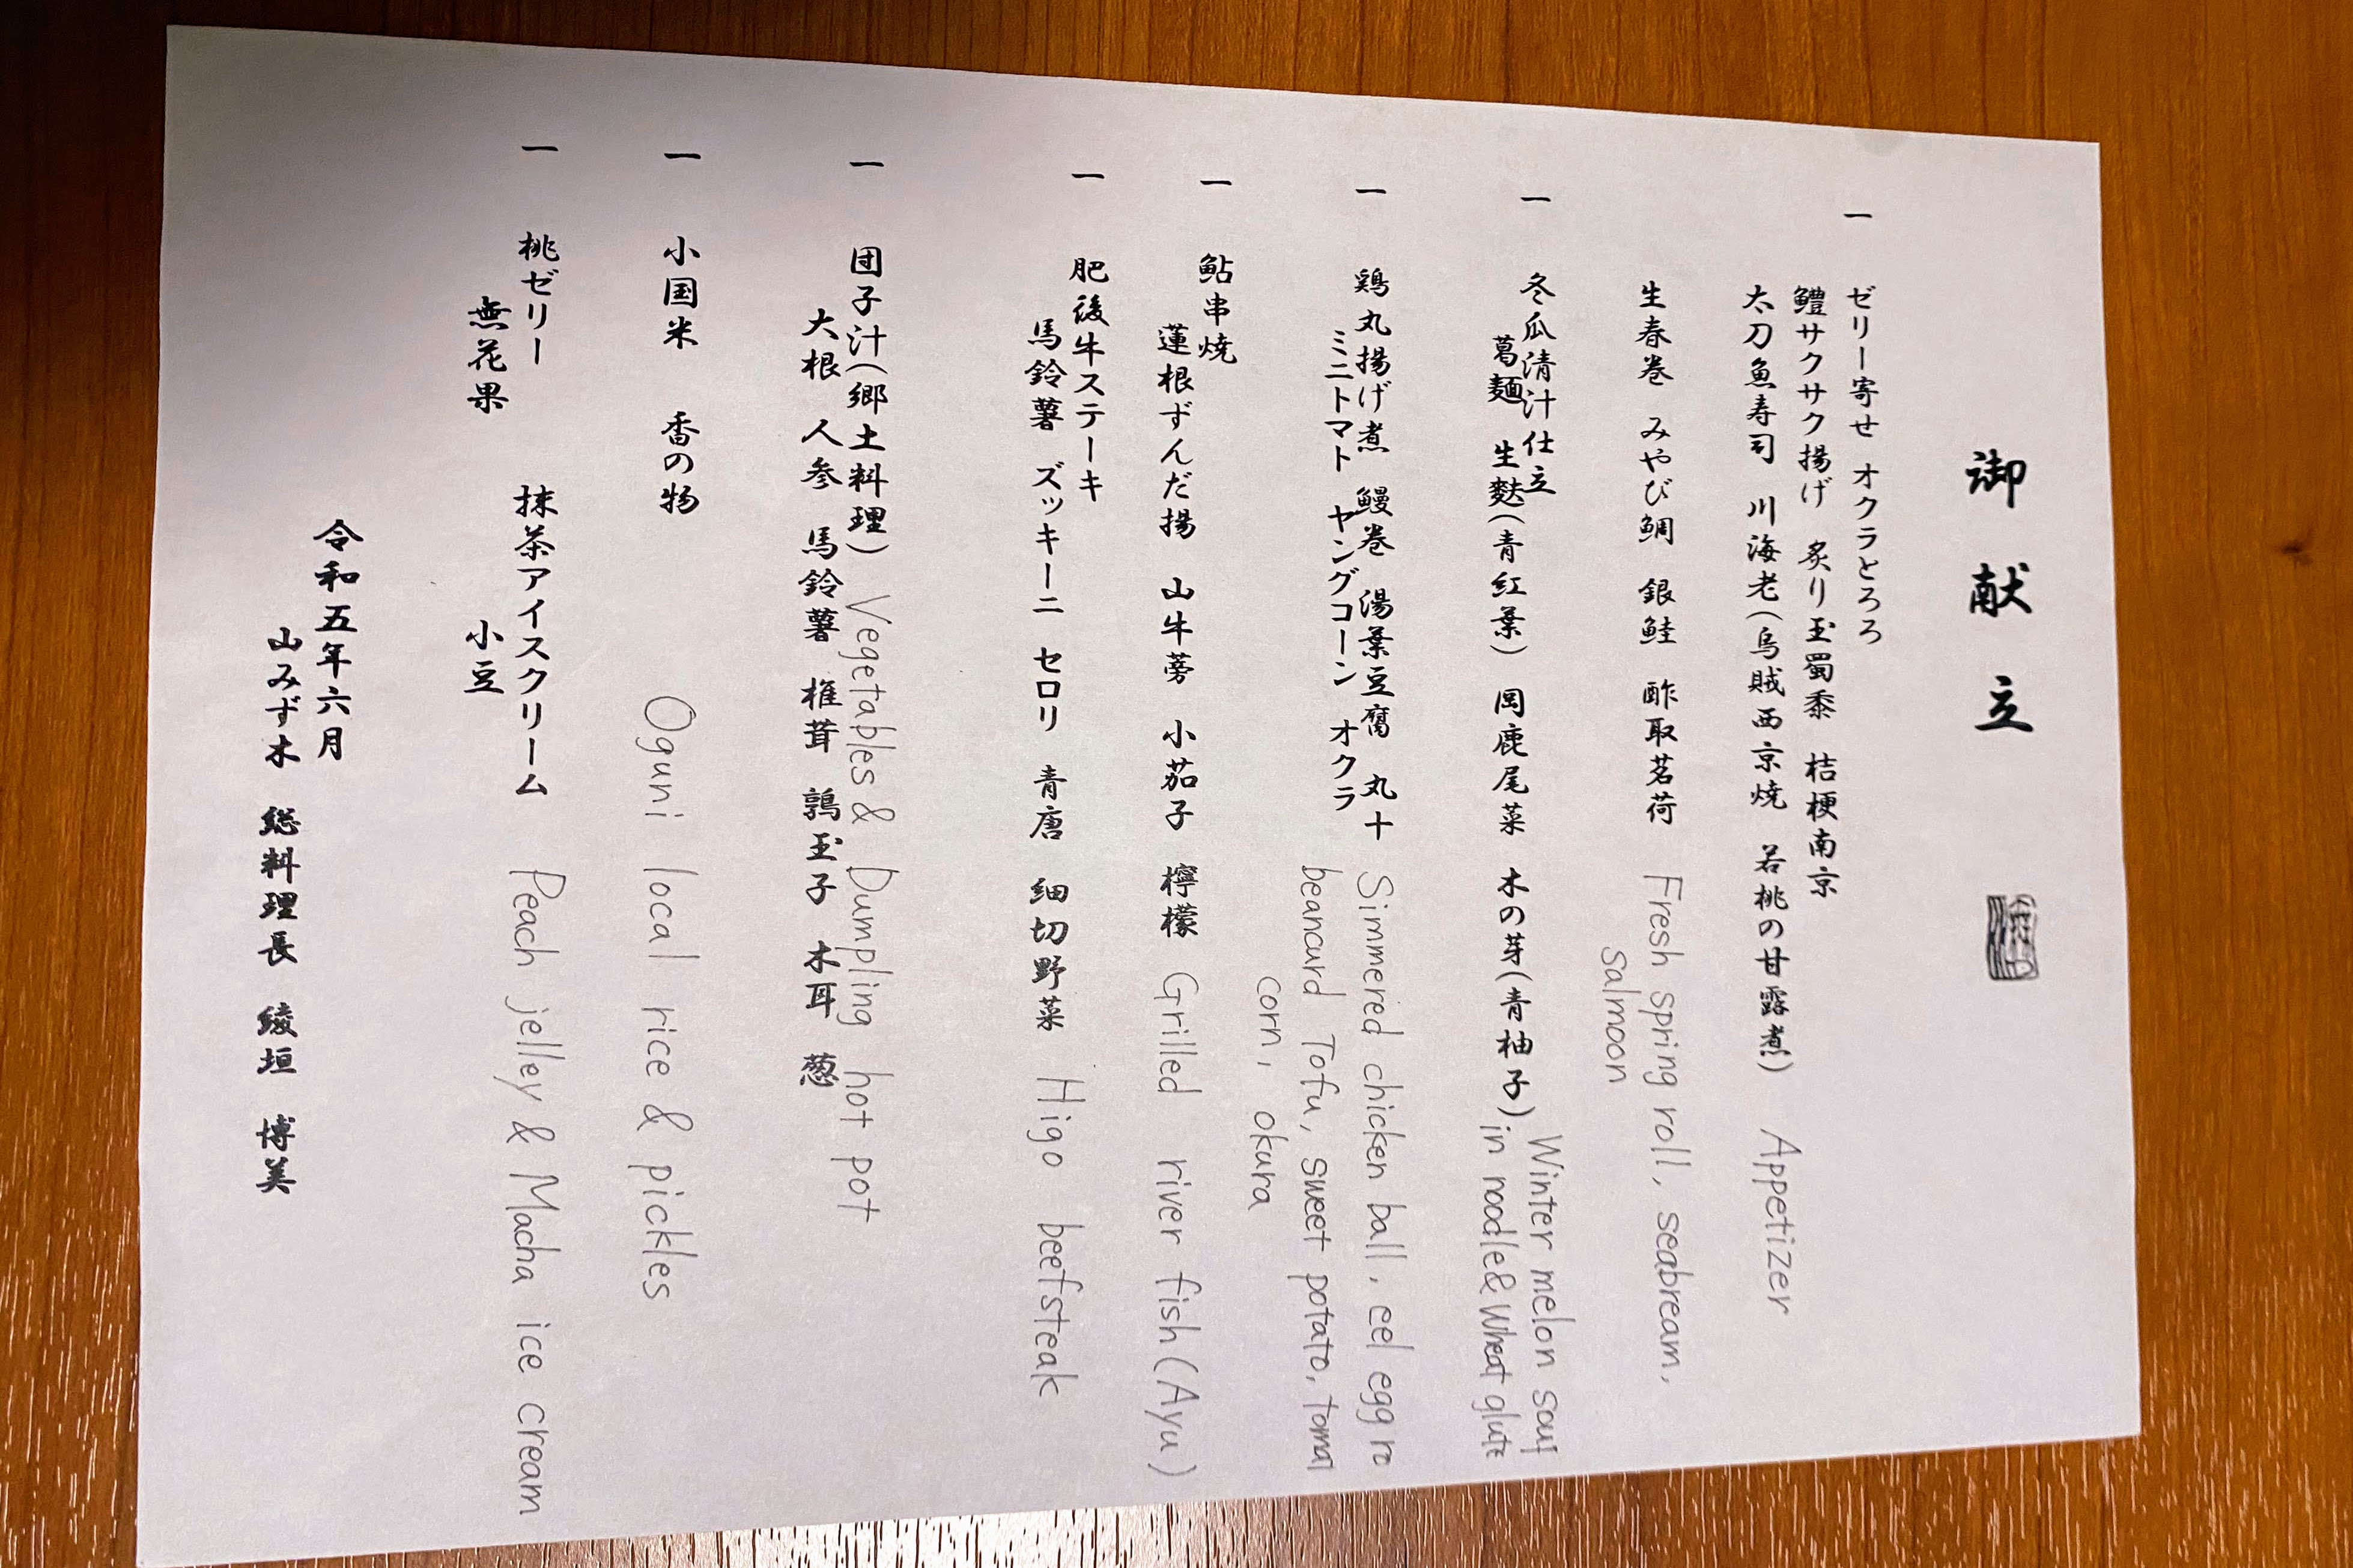 御献立
一 ゼリー寄せ オクラとろろ
鱧サクサク揚げ 炙り玉蜀黍 桔梗南京
太刀魚寿司 川海老(烏賊西京焼 若桃の甘露煮) Appetizer
生春巻 みやび鯛 銀鮭 酢取茗荷 Fresh spring roll, seabream,
salmoon
一 冬瓜清汁仕立 Winter melon soup
葛麺 生麩(青紅葉) 岡鹿尾菜 木の芽(青柚子) in noodle & wheat glute
一 鶏丸揚げ煮 鰻巻 湯葉豆腐 丸十 Simmered chicken ball, eel egg ro
ミニトマト ヤングコーン オクラ beancurd Tofu, sweet potato, tomat
corn, okura
一 鮎串焼
蓮根ずんだ揚 山牛蒡 小茄子 檸檬 Grilled river fish (Ayu)
一 肥後牛ステーキ
馬鈴薯 ズッキーニ セロリ 青唐 細切野菜 Higo beefsteak
一 団子汁(郷土料理) Vegetables & Dumpling hot pot
大根 人参 馬鈴薯 椎茸 鶉玉子 木耳 葱
一 小国米 香の物 Oguni local rice & pickles
一 桃ゼリー 抹茶アイスクリーム Peach jelley & Macha ice cream
無花果 小豆
令和五年六月
山みず木 総料理長 綾垣 博美